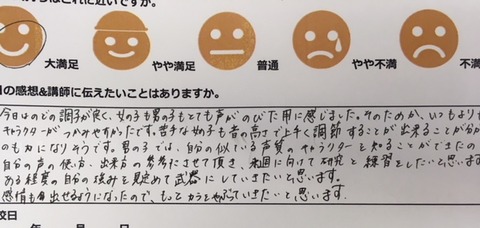 はこれに近いですか。
大満足 やや満足 普通 やや不満 不満
の感想&講師に伝えたいことはありますか。
今日はのどの調子が良く、女の子も男の子もとても声がのびた用に感じました。そのためか、いつもより
キャラクターがつかみやすかったです。苦手な女の子も音の高さで上手く調節することが出来ることが分か
のも力になりそうです。男の子では、自分の似ている声質のキャラクターを知ることができたの
自分の声の使い方、出来方の参考にさせて頂き、次回に向けて研究と練習をしたいと思います。
ある程度の自分の強みを見定めて武器にしていきたいと思います。
感情も出せるようになったので、もっとカラをやぶっていきたいと思います。
校日
年 月 日